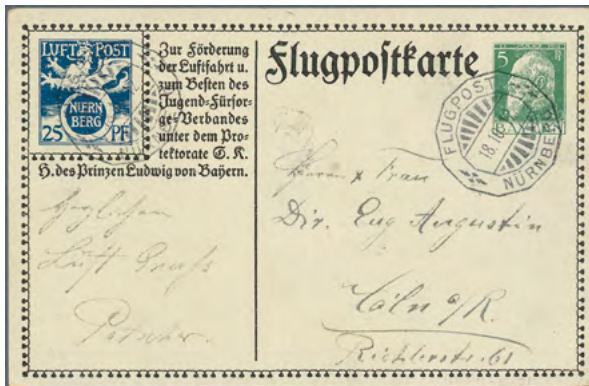 LUFT POST
NÜRN
BERG
25 PF
Zur Förderung
der Luftfahrt u.
zum Besten des
Jugend-Fürsor-
ge-Verbandes
unter dem Pro-
tektorate S. K.
H. des Prinzen Ludwig von Bayern.
Flugpostkarte
5
FLUGPOST
18.
NÜRNBERG
Herrn & Frau
Dir. Eug Augustin
Cöln a/R.
Richterstr. 61
Herzlichen
Luft Gruß